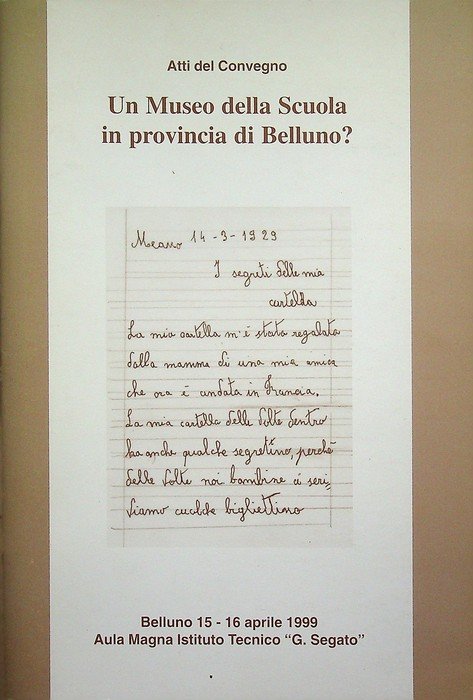 Atti del Convegno
Un Museo della Scuola
in provincia di Belluno?
Meano 14-3-1929
I segreti delle mia
cartella
La mia cartella m'è stata regalata
dalla mamma di una mia amica
che ora è andata in Francia.
La mia cartella delle volte dentro
ha anche qualche segretino, perchè
delle volte noi bambine ci scri,
viamo cualche bigliettino
Belluno 15 - 16 aprile 1999
Aula Magna Istituto Tecnico “G. Segato”